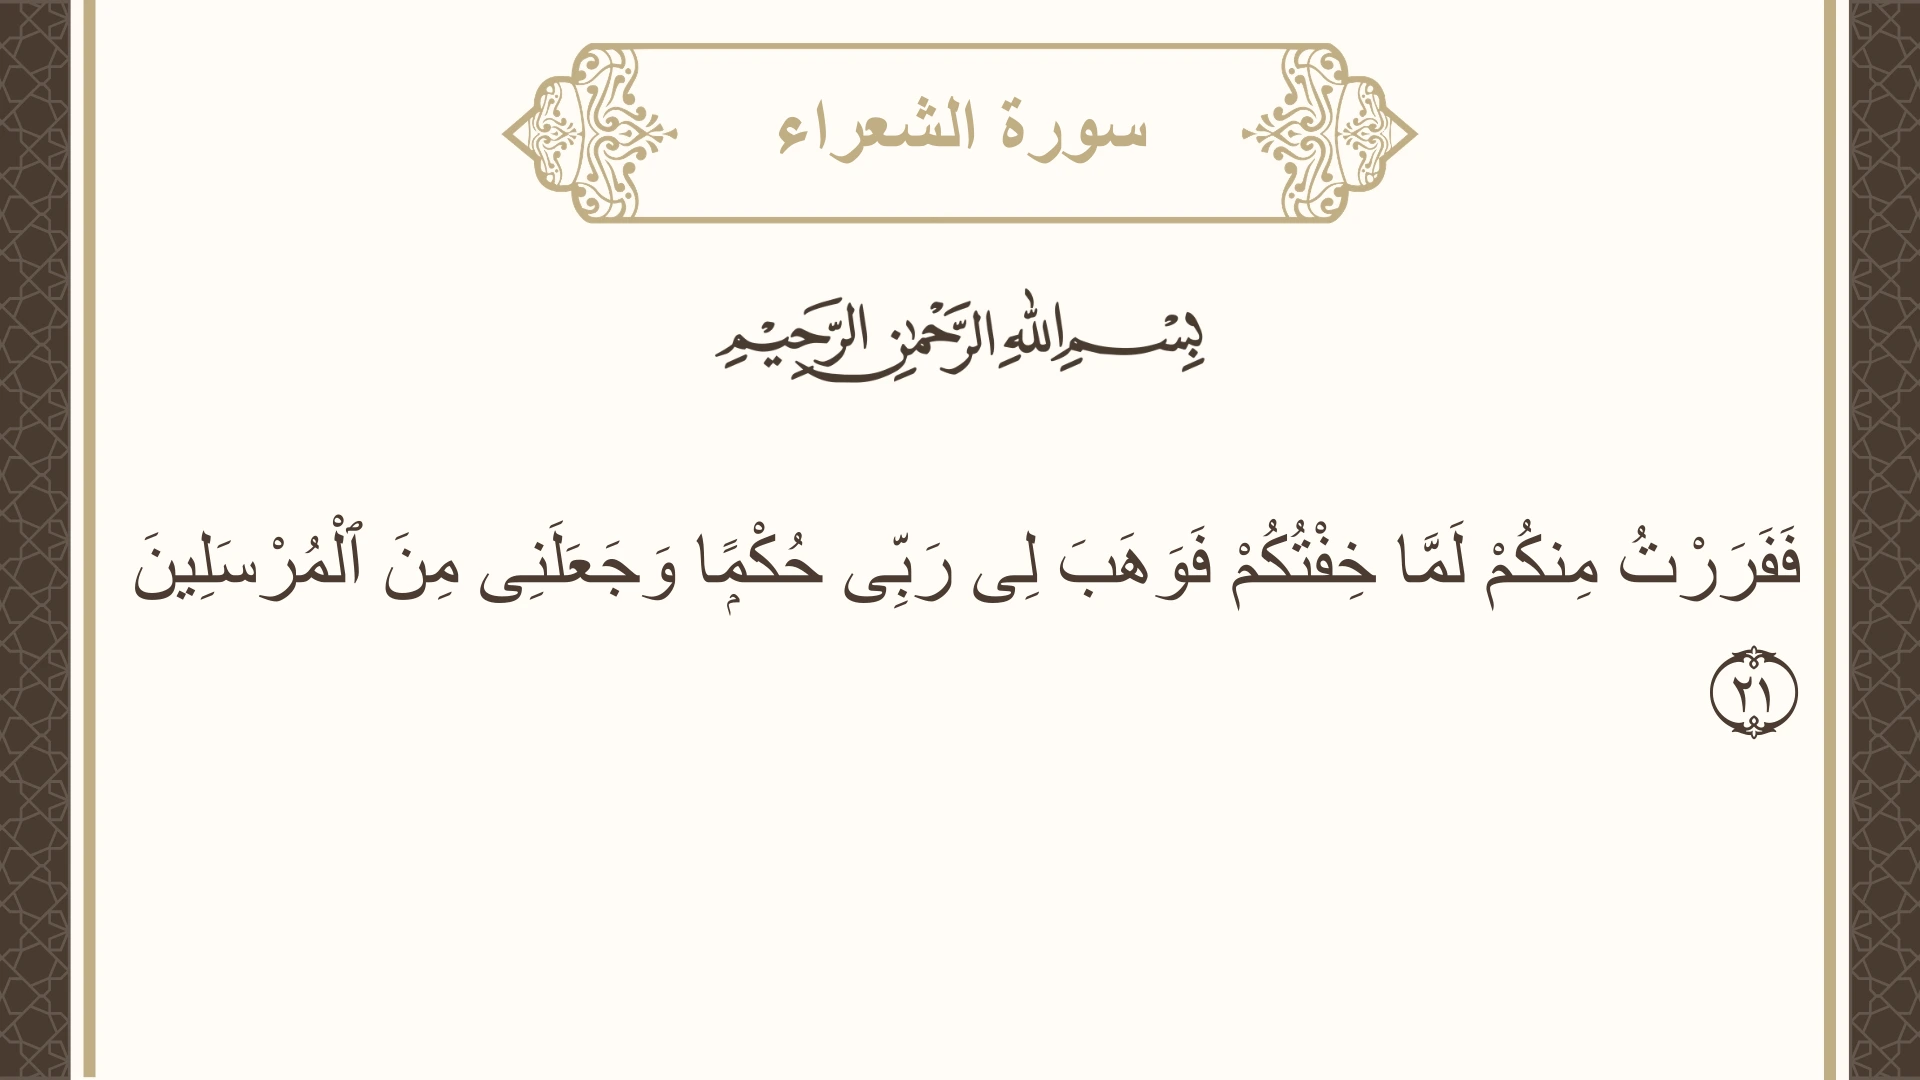 سورة الشعراء
بِسْمِ اللهِ الرَّحْمٰنِ الرَّحِيْمِ
فَفَرَرْتُ مِنكُمْ لَمَّا خِفْتُكُمْ فَوَهَبَ لِى رَبِّى حُكْمًۭا وَجَعَلَنِى مِنَ ٱلْمُرْسَلِينَ
٢١